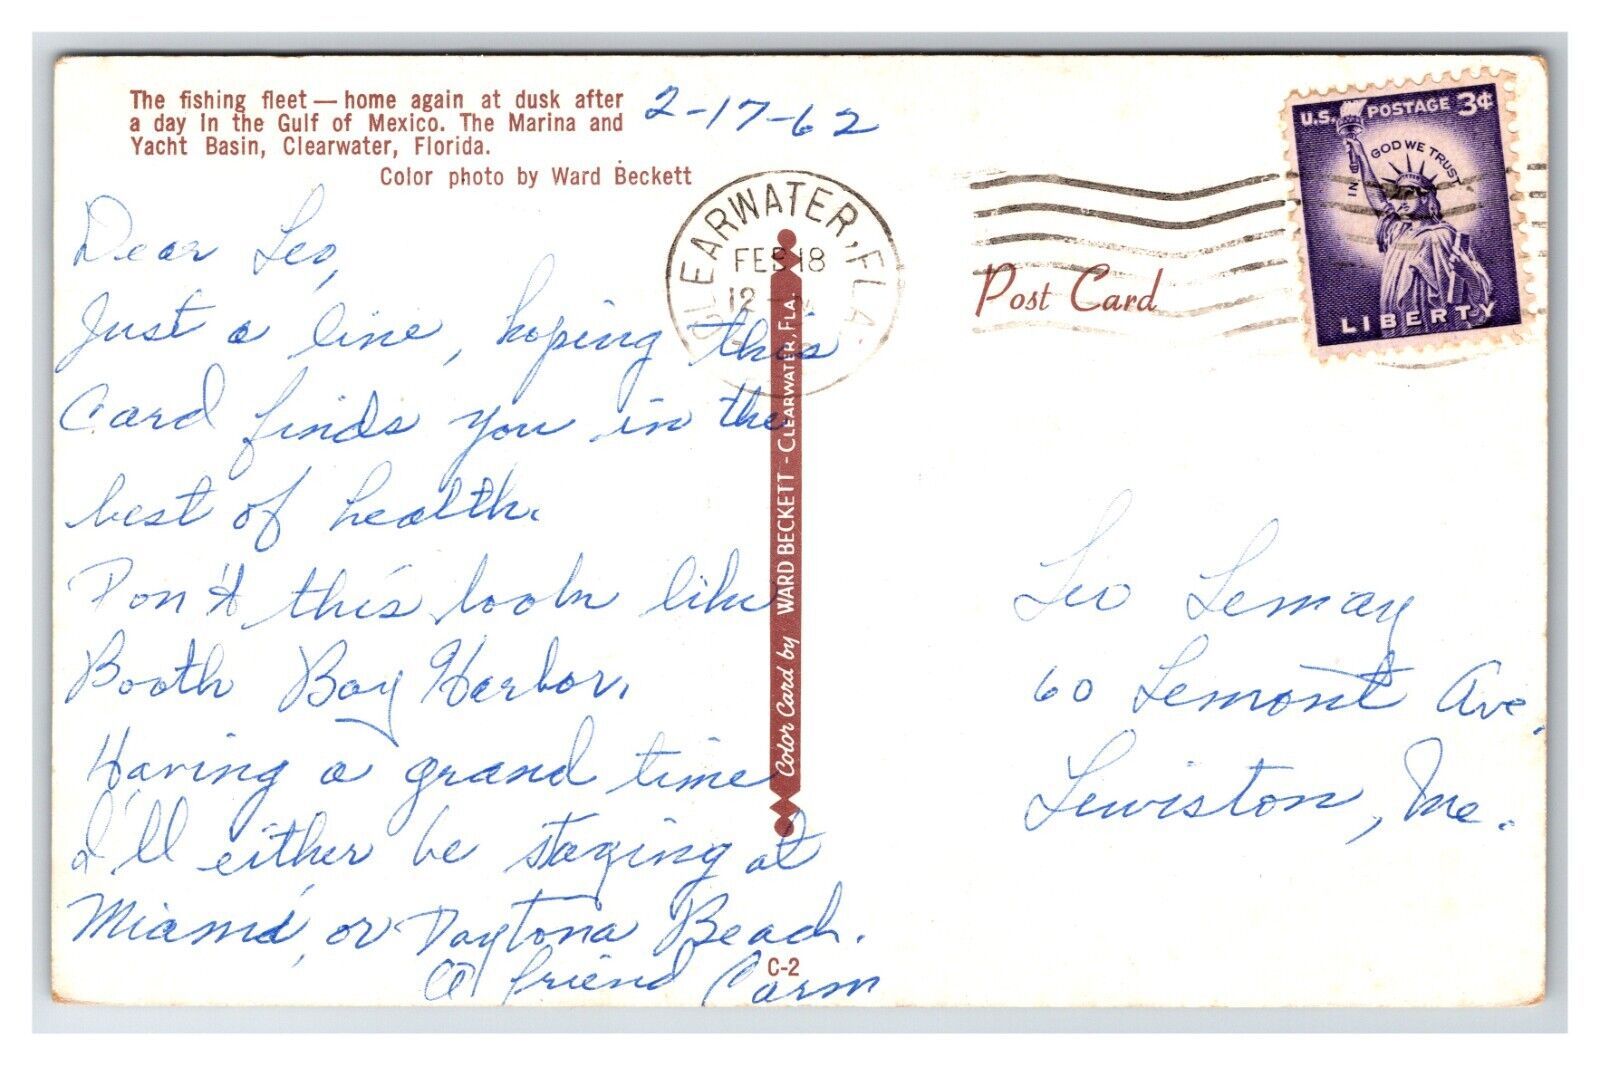 The fishing fleet — home again at dusk after
a day in the Gulf of Mexico. The Marina and
Yacht Basin, Clearwater, Florida.
Color photo by Ward Beckett
2-17-62
Dear Leo,
Just a line, hoping this
Card finds you in the
best of health.
Don't this look like
Booth Bay Harbor.
Having a grand time
I'll either be staying at
Miami, or Daytona Beach.
A friend Carm
C-2
CLEARWATER, FLA.
FEB 18
12
Color Card by WARD BECKETT - CLEARWATER, FLA.
Post Card
U.S. POSTAGE 3¢
IN GOD WE TRUST
LIBERTY
Leo Lemay
60 Lemont Ave.
Lewiston, Me.